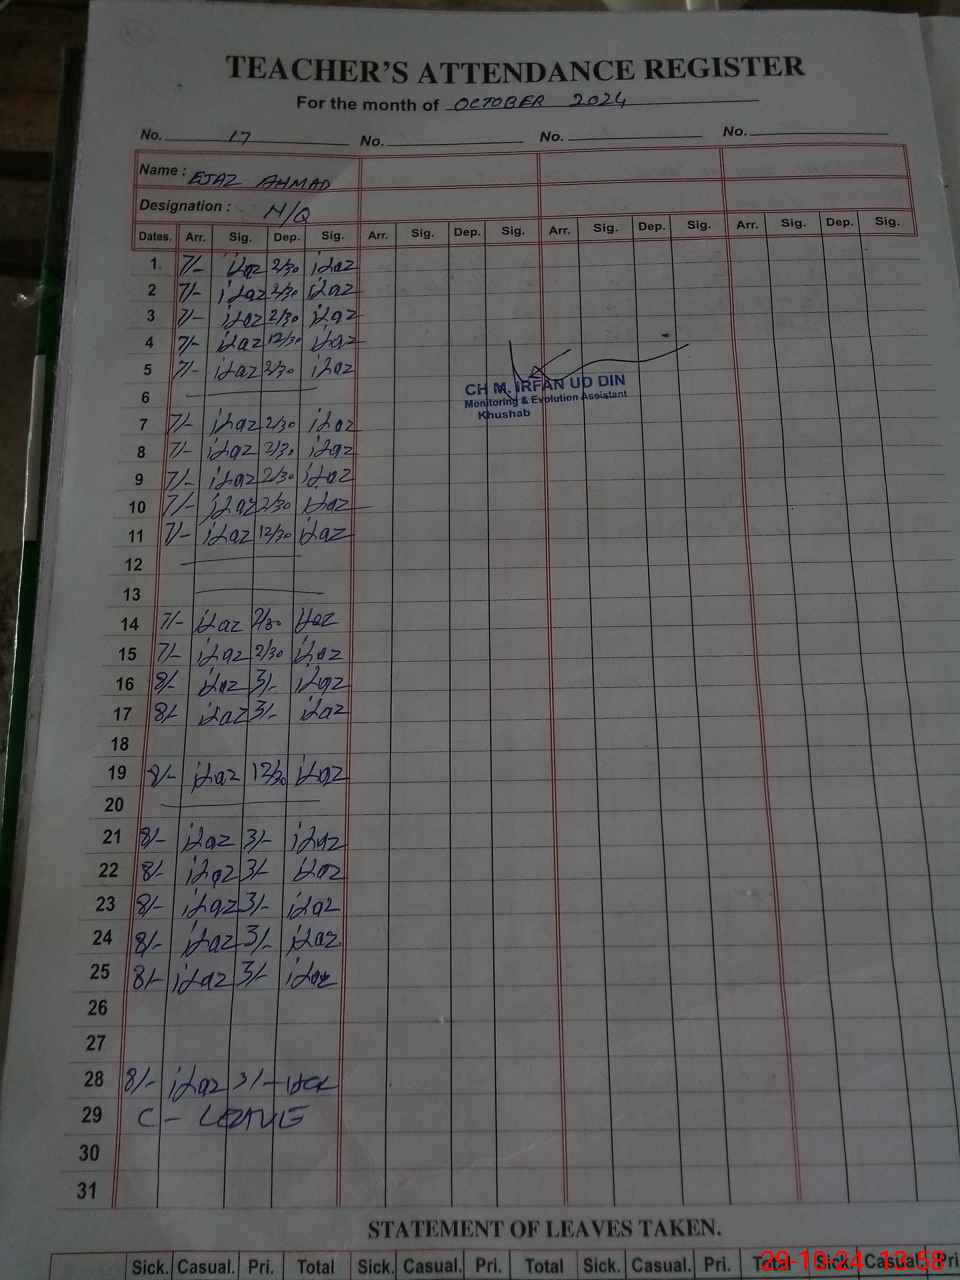 TEACHER'S ATTENDANCE REGISTER
For the month of OCTOBER 2024
No. 17 No. No. No.
Name : EJAZ AHMAD
Designation : N/Q
Dates. Arr. Sig. Dep. Sig. Arr. Sig. Dep. Sig. Arr. Sig. Dep. Sig. Arr. Sig. Dep. Sig.
1. 7/- ijaz 2/30 ijaz
2 7/- ijaz 2/30 ijaz
3 7/- ijaz 2/30 ijaz
4 7/- ijaz 12/30 ijaz
5 7/- ijaz 2/30 ijaz
CH M. IRFAN UD DIN
Monitoring & Evolution Assistant
Khushab
6
7 7/- ijaz 2/30 ijaz
8 7/- ijaz 2/30 ijaz
9 7/- ijaz 2/30 ijaz
10 7/- ijaz 2/30 ijaz
11 7/- ijaz 12/30 ijaz
12
13
14 7/- ijaz 2/30 ijaz
15 7/- ijaz 2/30 ijaz
16 8/- ijaz 3/- ijaz
17 8/- ijaz 3/- ijaz
18
19 8/- ijaz 12/30 ijaz
20
21 8/- ijaz 3/- ijaz
22 8/- ijaz 3/- ijaz
23 8/- ijaz 3/- ijaz
24 8/- ijaz 3/- ijaz
25 8/- ijaz 3/- ijaz
26
27
28 8/- ijaz 3/- ijaz
29 C - LEAVE
30
31
STATEMENT OF LEAVES TAKEN.
Sick. Casual. Pri. Total Sick. Casual. Pri. Total Sick. Casual. Pri. Total Sick. Casual. Pri
29-10-24 12:58